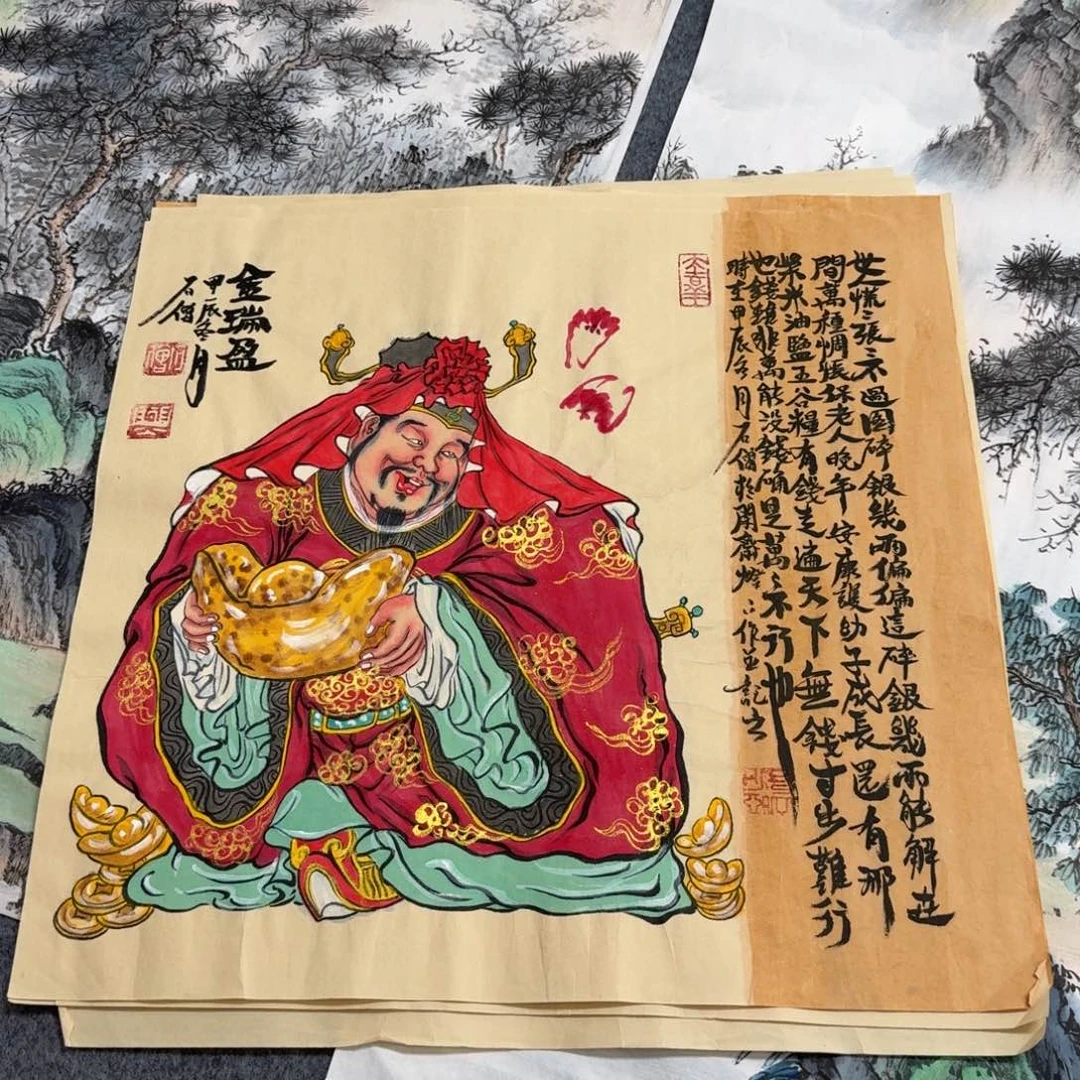 世慌〻張〻不過圖碎銀幾兩偏偏這碎銀幾兩能解世
間萬種惆悵保老人晚年安康護幼子成長有那
柴米油鹽五谷糧有錢走遍天下無錢寸步難行
也錢雖非萬能没錢确是萬〻不行也
時在甲辰冬月石於齋燈下作並記之
金瑞盈
甲辰冬月
石